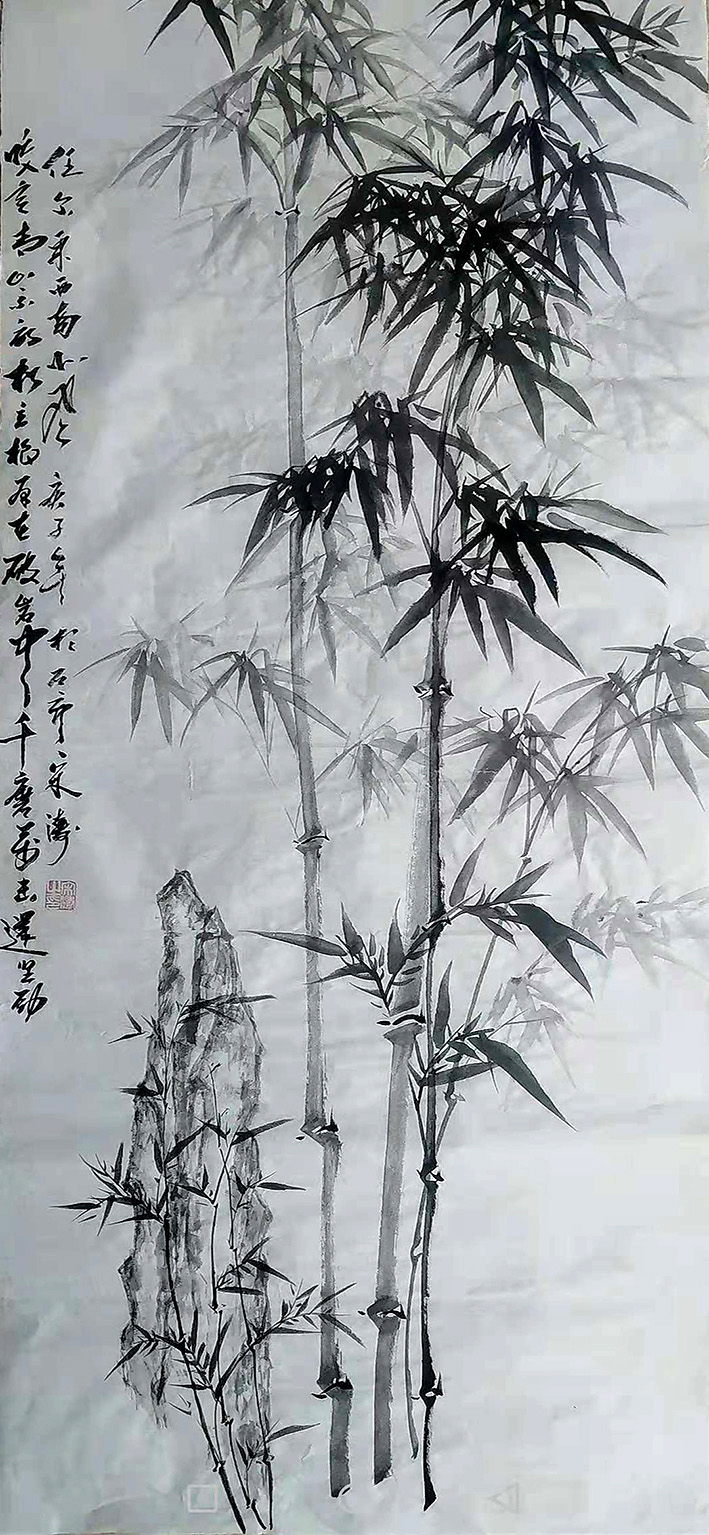 咬定青山不放松立根原在破岩中千磨萬击還坚劲
任尔東西南北风 庚子年於石市宋涛